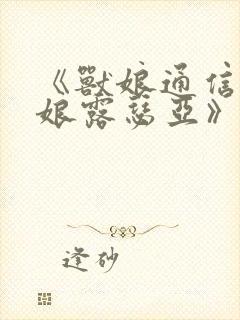 《獸娘通信
娘露瑟亞》
逢砂